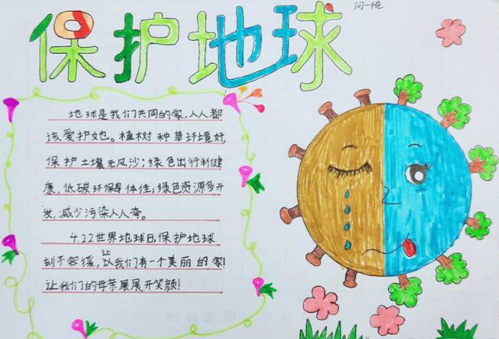 保护地球
地球是我们共同的家,人人都
该爱护她。植树种草环境好,
保护土壤无风沙;绿色出行利健
康,低碳环保导体佳;绿色资源多开
发,减少污染人人夸。
4.22世界地球日,保护地球
刻不容缓,让我们有一个美丽的家!
让我们的母亲展开笑颜!